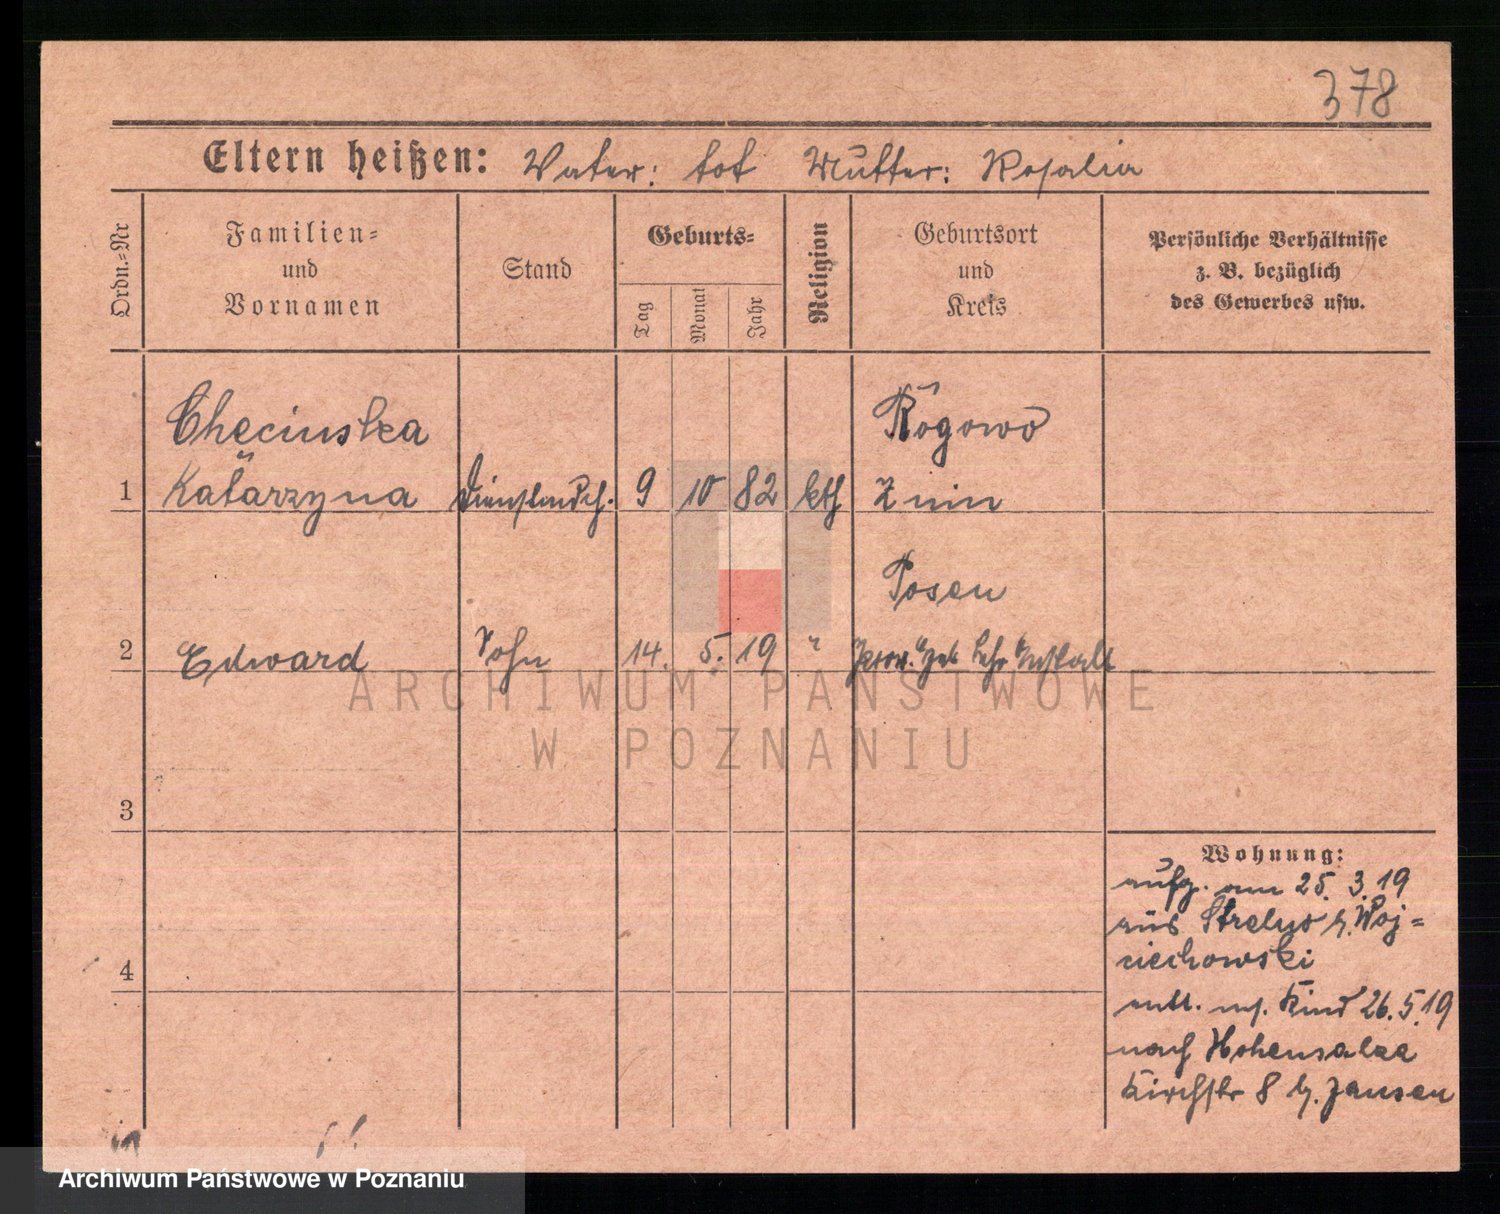 378
Eltern heißen: Vater: tot Mutter: Rosalia
Ordn.=Nr
Familien=
und
Vornamen
Stand
Geburts=
Tag
Monat
Jahr
Religion
Geburtsort
und
Kreis
Persönliche Verhältnisse
z. B. bezüglich
des Gewerbes usw.
Checinska
Rogowo
1 Katarzyna Dienstmdch. 9 10 82 kth Znin
Posen
2 Edward Sohn 14. 5. 19 " Prov. Heb Lehr Anstalt
ARCHIWUM PAŃSTWOWE
W POZNANIU
3
4
Wohnung:
aufg. am 25. 3. 19
aus Strelno b. Woj=
ciechowski
entl. m. Kind 26. 5. 19
nach Hohensalza
Kirchstr 8 b. Jansen
Archiwum Państwowe w Poznaniu